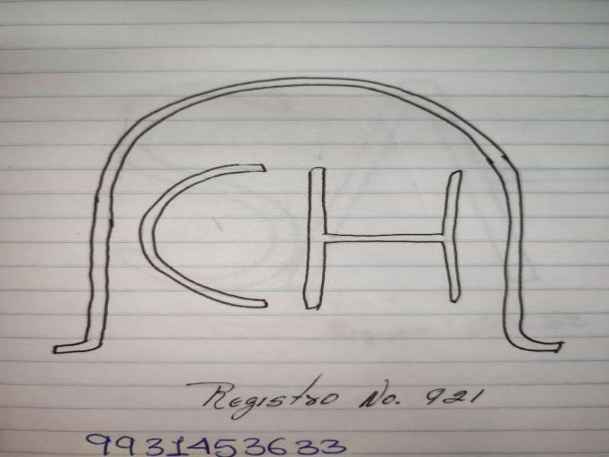 CH
Registro No. 921
9931453633